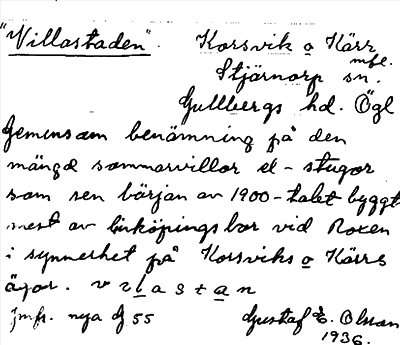 "Villastaden". Korsvik o Kärr
mfl.
Stjärnorp sn.
Gullbergs hd. Ögl
Gemensam benämning på den
mängd sommarvillor el - stugor
som sen början av 1900-talet byggt
mest av linköpings bor vid Roxen
i synnerhet på Korsviks o Kärrs
ägor. v ɪ l a s t a n
jmfr. nya G 55 Gustaf E. Olsson
1936.